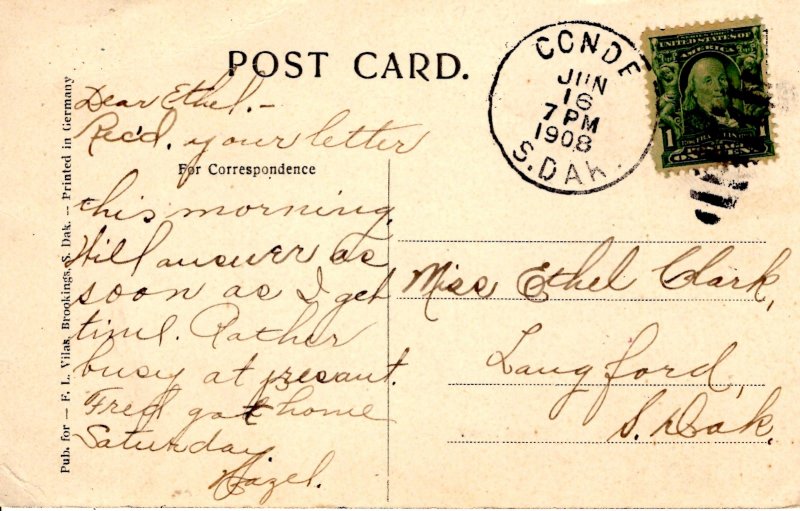 POST CARD.
CONDE
JUN
16
7 PM
1908
S. DAK.
UNITED STATES OF
AMERICA
1
1
ONE CENT
Dear Ethel.-
Rec'd. your letter
For Correspondence
this morning.
Will answer as
soon as I get
time. Rather
busy at presant.
Fred got home
Saturday
Hazel.
Miss Ethel Clark,
Langford,
S. Dak.
Pub. for — F. L. Vilas, Brookings, S. Dak. — Printed in Germany